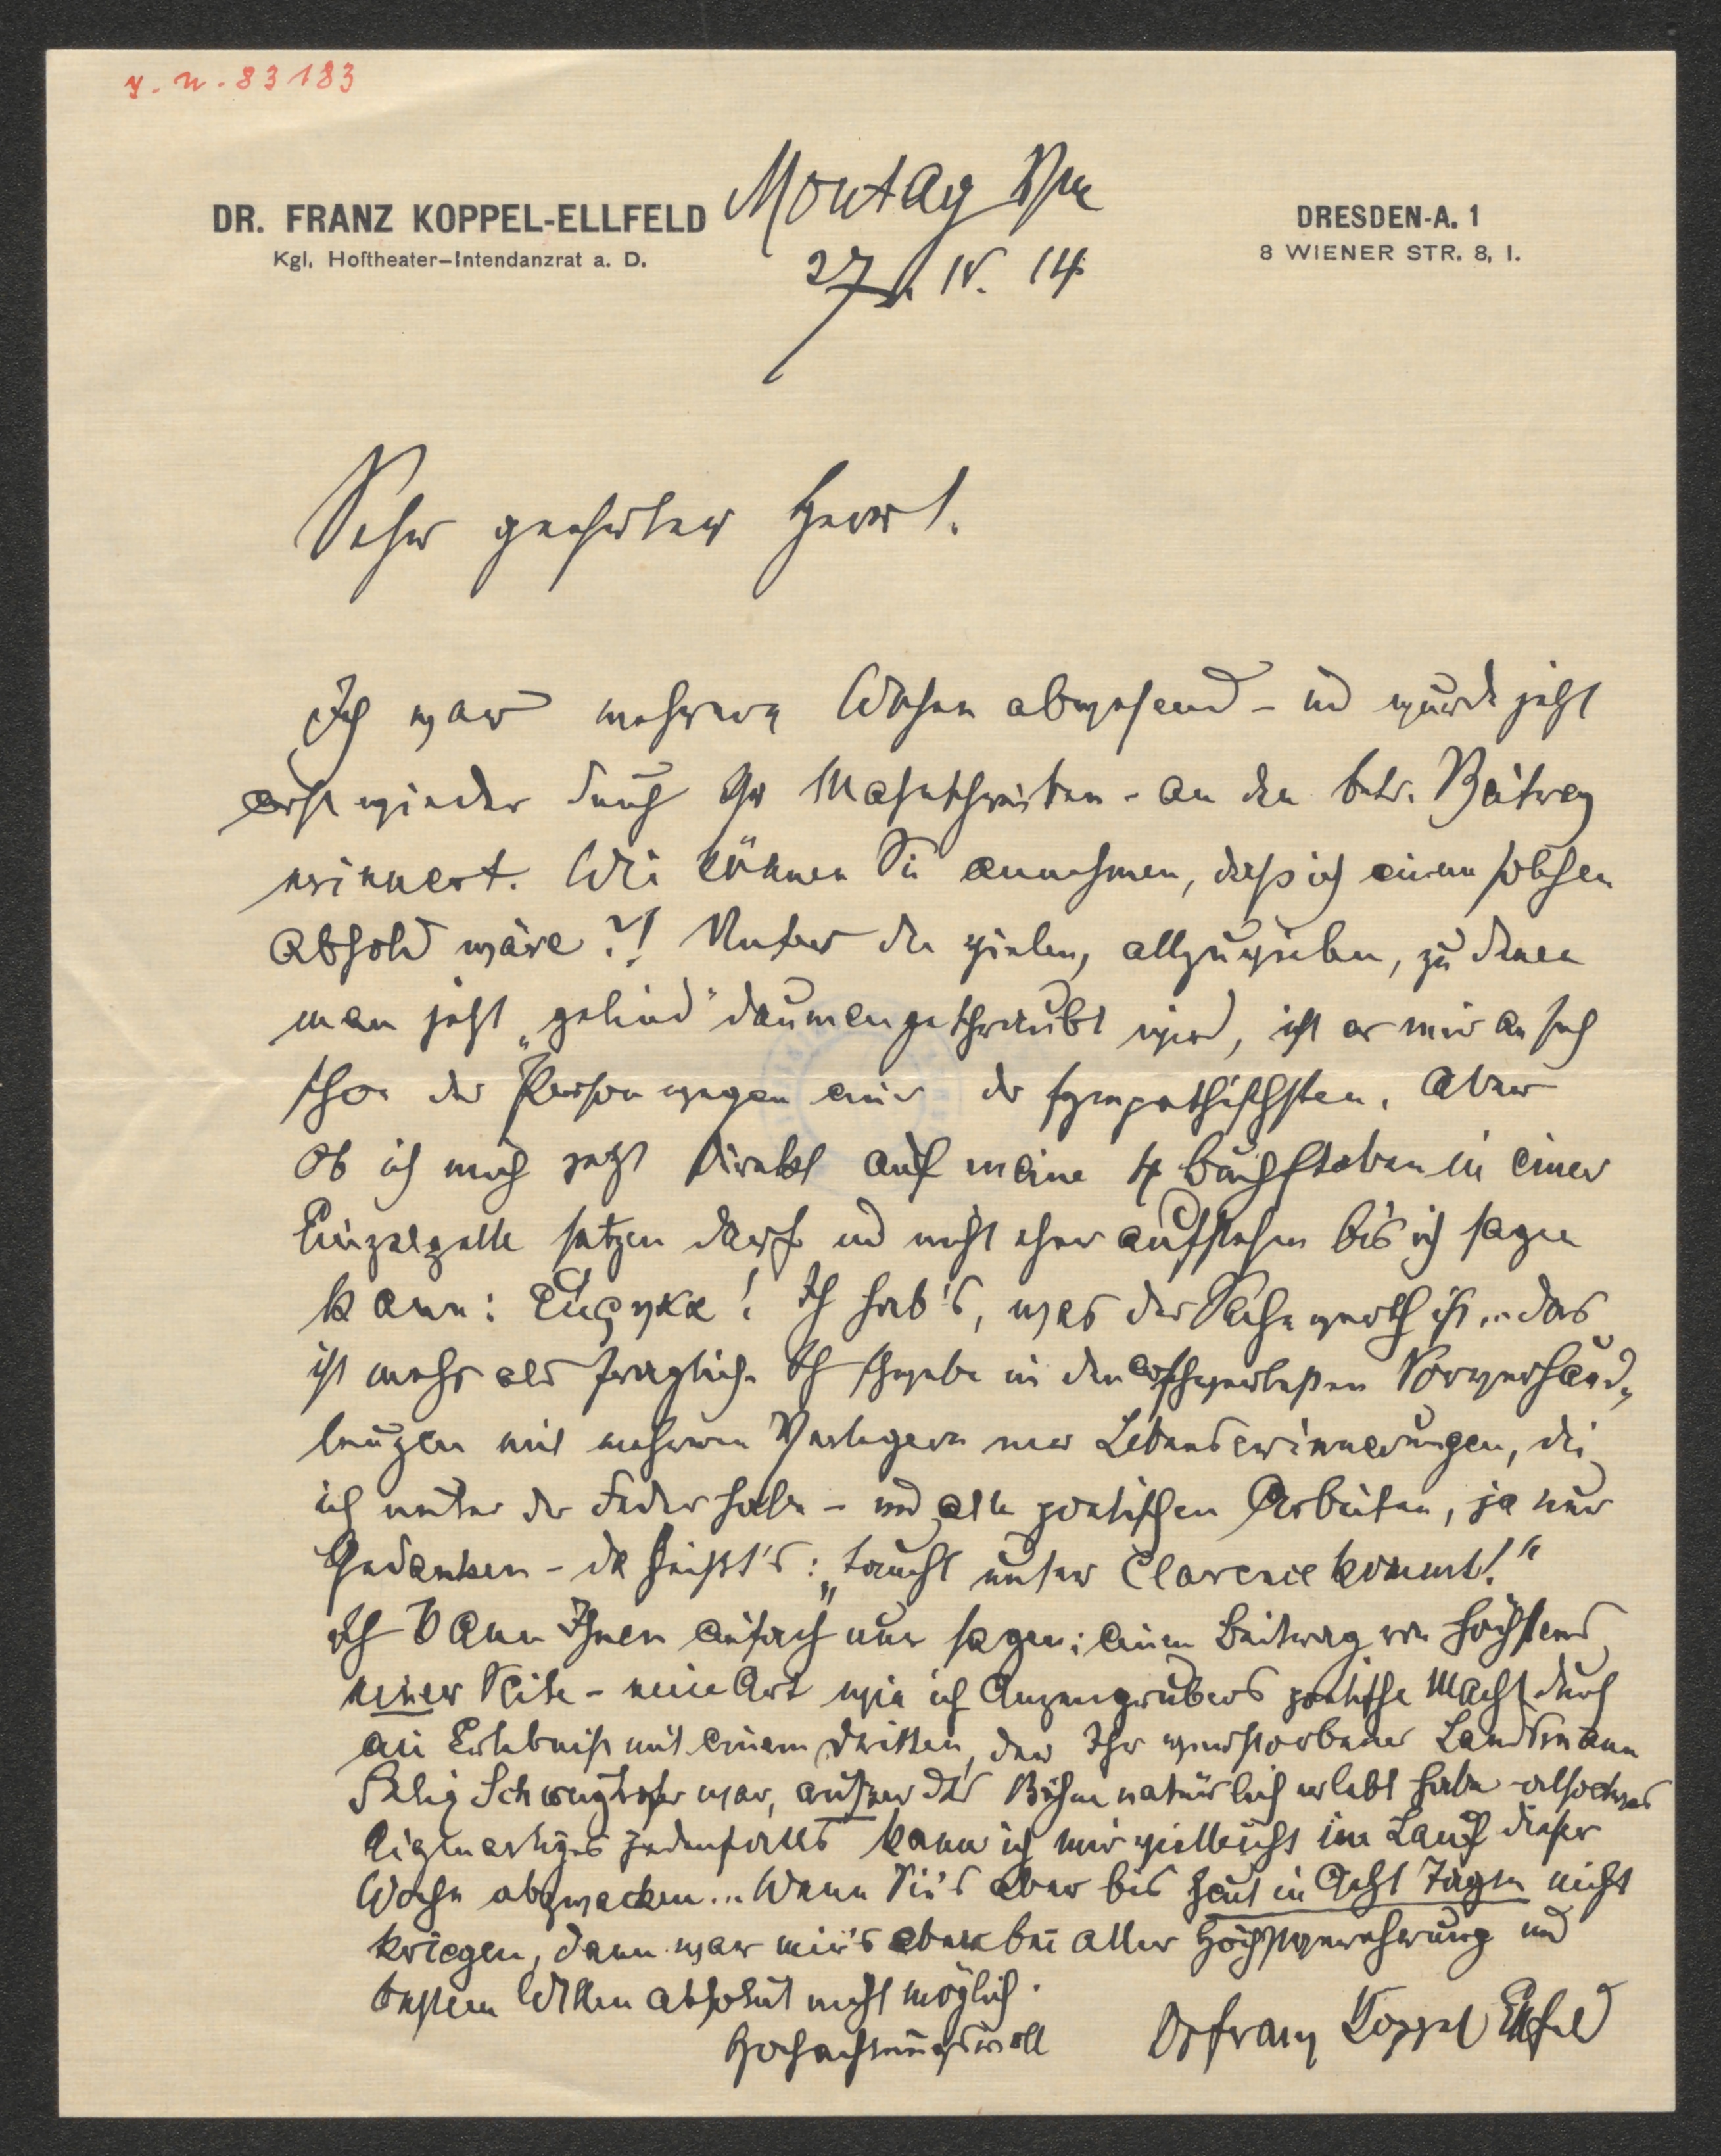 J. N. 83183
DR. FRANZ KOPPEL-ELLFELD
Kgl. Hoftheater-Intendanzrat a. D.
Montag
27. IV. 14
DRESDEN-A. 1
8 WIENER STR. 8, I.
Sehr geehrter Herr!
Ich war mehrere Wochen abwesend - und wurde jetzt
erst wieder durch Ihr Mahnschreiben - an den betr. Beitrag
erinnert. Wie können Sie annehmen, daß ich einem solchen
abhold wäre?! Unter den vielen, allzuvielen, zu denen
man jetzt „gelind" daumengeschraubt wird, ist er mir an sich
schon der Person wegen einer der sympathischsten. Aber
ob ich mich jetzt direkt auf meine 4 Buchstaben in einer
Einzelzelle setzen darf und nicht eher aufstehen bis ich sagen
kann: Εὕρηκα! Ich hab's, was der Sache werth ist ... das
ist mehr als fraglich. Ich schwebe in den Vorverhand-
lungen mit mehreren Verlegern meiner Lebenserinnerungen, die
ich unter der Feder habe - und alle poetischen Arbeiten, ja nur
Gedanken - da heißt's: „taucht unter Clarence kommt!"
Ich kann Ihnen einfach nur sagen: einen Beitrag von höchstens
einer Seite - eine Art wie ich Anzengrubers poetische Macht durch
ein Erlebniß mit einem dritten, der Ihr verstorbener Landsmann
Felix Schweighofer war, außer der Bühne natürlich erlebt habe - also etwas
Eigenartiges jedenfalls kann ich mir vielleicht im Lauf dieser
Woche abzwacken... Wenn Sie's aber bis heut in Acht Tagen nicht
kriegen, dann war mir's eben bei aller Höchstverehrung und
bestem Willen absolut nicht möglich.
Hochachtungsvoll Dr Franz Koppel Ellfeld